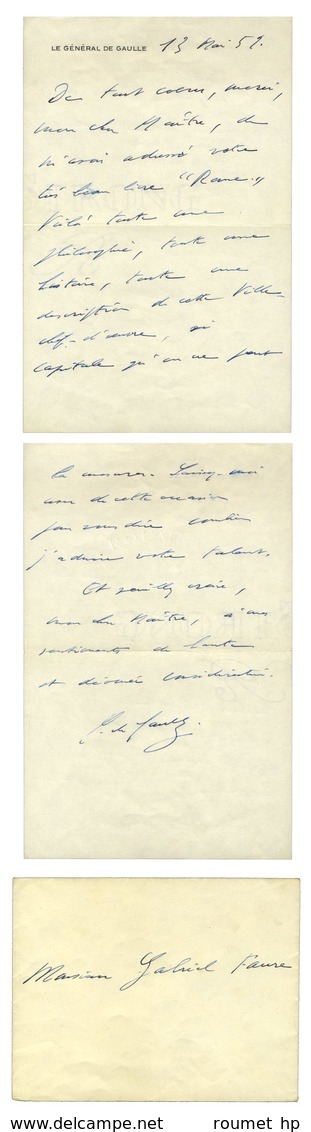 LE GÉNÉRAL DE GAULLE 13 Mai 59.
De tout cœur, merci,
mon cher Maître, de
m'avoir adressé votre
très beau livre "Rome".
Voilà toute une
philosophie, toute une
histoire, toute une
description de cette Ville-
chef-d'œuvre, si
capitale qu'on ne peut
la mesurer. Laissez-moi
user de cette occasion
pour vous dire combien
j'admire votre talent.
Et veuillez croire,
mon cher Maître, à mes
sentiments de haute
et dévouée considération.
C. de Gaulle.
Monsieur Gabriel Faure
www.delcampe.net roumet hp